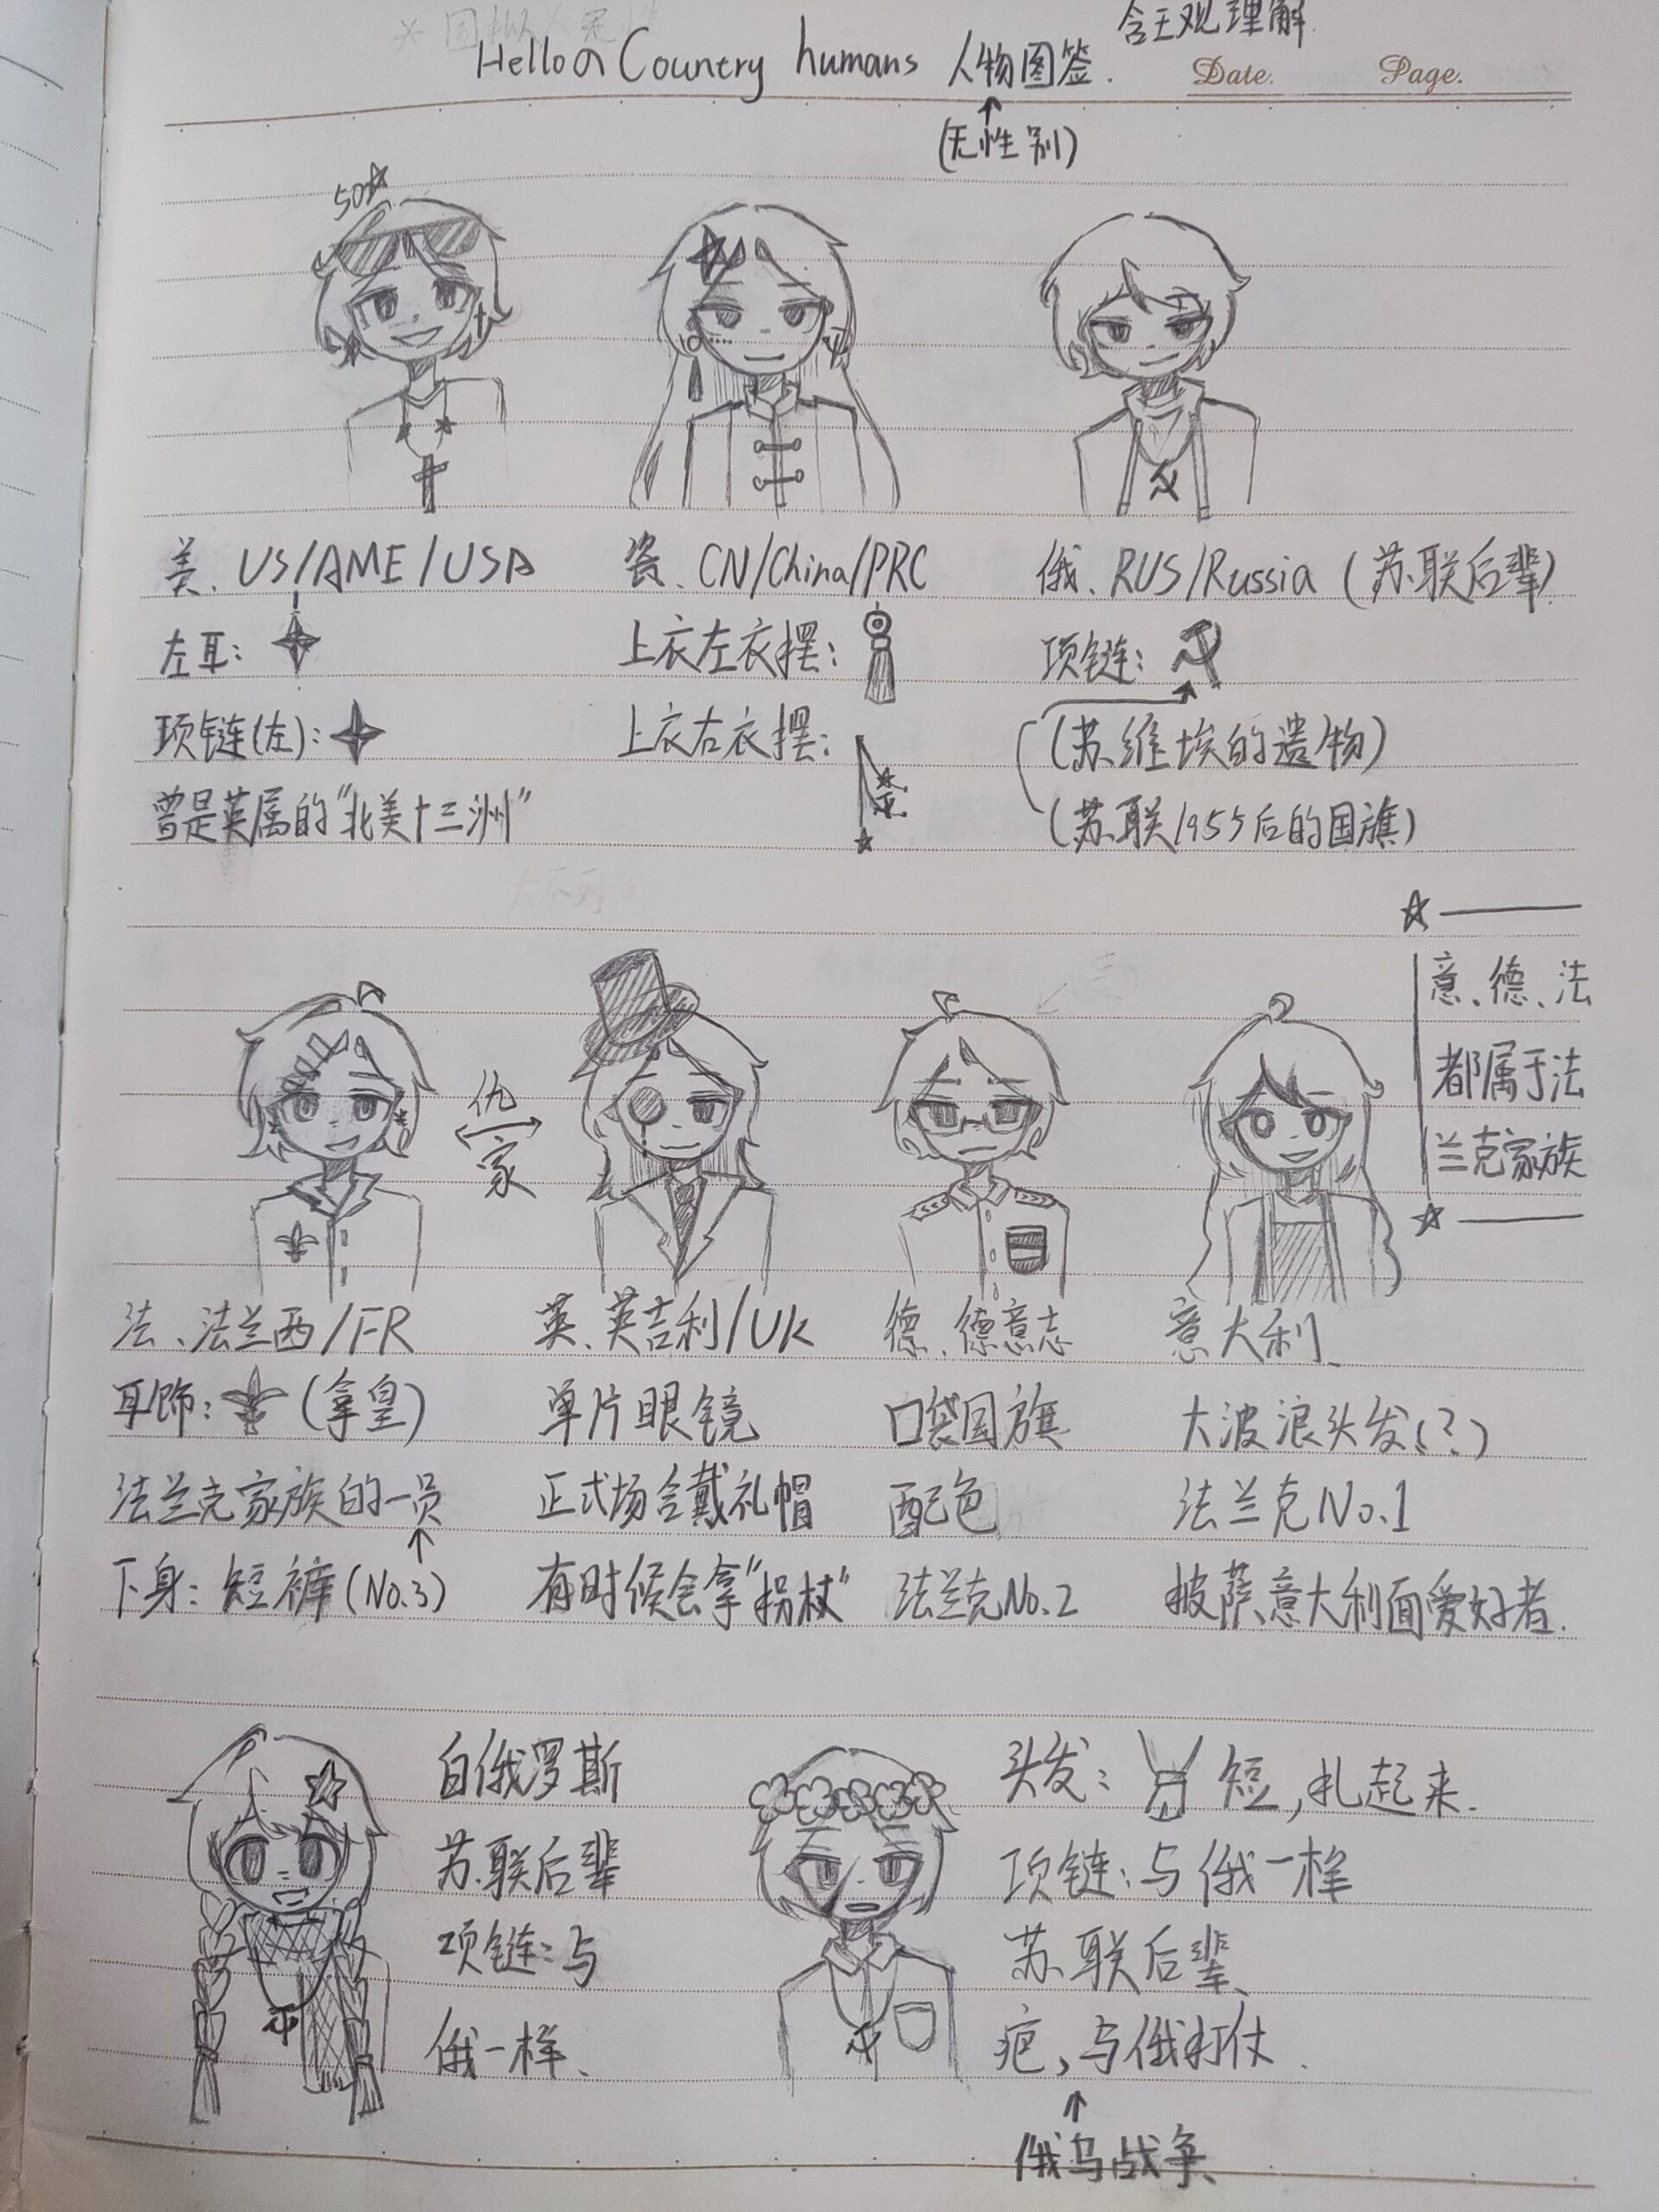 含主观理解
Hello Country humans 人物图签.
Date. Page.
(无性别)
50☆
美、US/AME/USA
左耳:
项链(左):
曾是英属的"北美十三洲"
瓷、CN/China/PRC
上衣左衣摆:
上衣右衣摆:
俄、RUS/Russia (苏联后辈)
项链:
(苏维埃的遗物)
(苏联1955后的国旗)
意、德、法
都属于法
兰克家族
仇
家
法、法兰西/FR
耳饰: (拿皇)
法兰克家族的一员
下身: 短裤(No.3)
英、英吉利/UK
单片眼镜
正式场合戴礼帽
有时候会拿"拐杖"
德、德意志
口袋国旗
配色
法兰克No.2
意大利、
大波浪头发(?)
法兰克No.1
披萨意大利面爱好者.
白俄罗斯
苏联后辈
项链:与
俄一样、
头发: 短,扎起来.
项链:与俄一样
苏联后辈、
疤,与俄打仗.
俄乌战争、